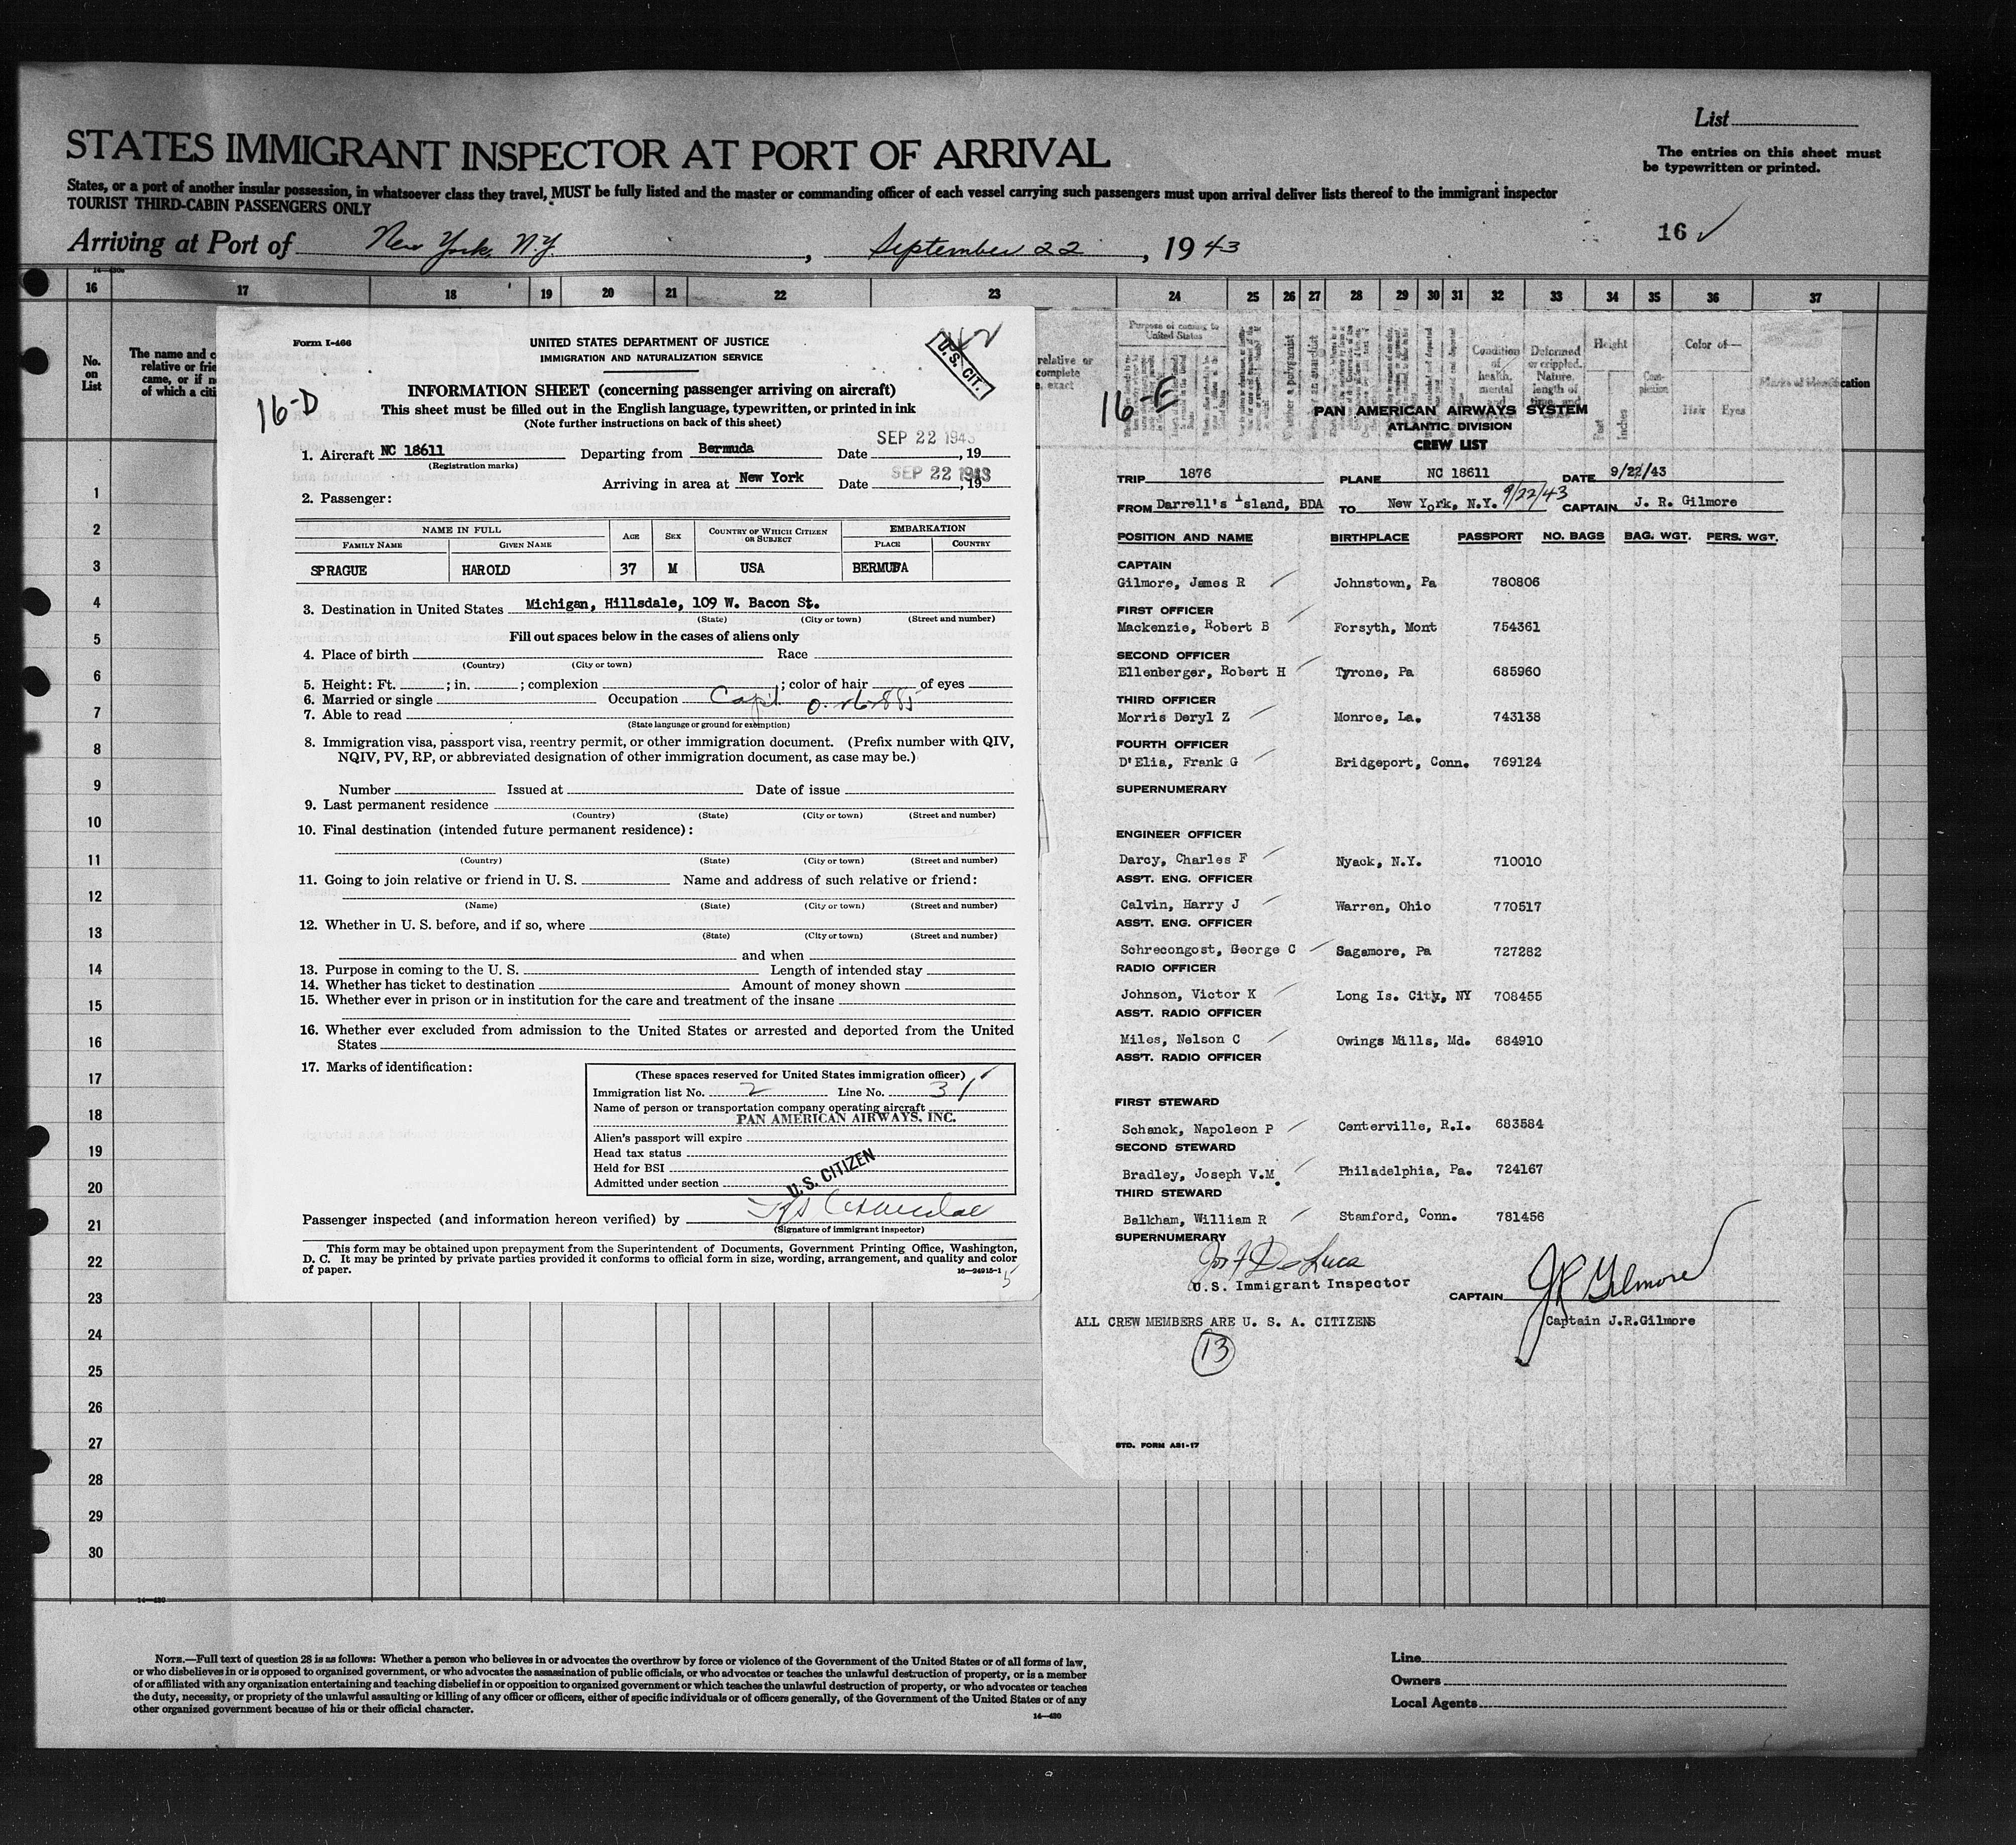 List
STATES IMMIGRANT INSPECTOR AT PORT OF ARRIVAL
The entries on this sheet must
be typewritten or printed.
States, or a port of another insular possession, in whatsoever class they travel, MUST be fully listed and the master or commanding officer of each vessel carrying such passengers must upon arrival deliver lists thereof to the immigrant inspector
TOURIST THIRD-CABIN PASSENGERS ONLY
16 ✓
Arriving at Port of New York, N.Y. , September 22 , 1943
16 17 18 19 20 21 22 23 24 25 26 27 28 29 30 31 32 33 34 35 36 37
No.
on
List
The name and c
relative or frie
came, or if n
of which a citi
relative or
complete
, exact
Purpose of coming to
United States
Whether a polygamist
Condition
of
health,
mental
and
Deformed
or crippled.
Nature,
length of
time, and
Height
Feet
Inches
Com-
plexion
Color of—
Hair Eyes
Marks of identification
1
2
3
4
5
6
7
8
9
10
11
12
13
14
15
16
17
18
19
20
21
22
23
24
25
26
27
28
29
30
Form I-466
UNITED STATES DEPARTMENT OF JUSTICE
IMMIGRATION AND NATURALIZATION SERVICE
U.S. CIT.
16-D
INFORMATION SHEET (concerning passenger arriving on aircraft)
This sheet must be filled out in the English language, typewritten, or printed in ink
(Note further instructions on back of this sheet)
SEP 22 1943
1. Aircraft NC 18611 Departing from Bermuda Date , 19
(Registration marks)
Arriving in area at New York Date SEP 22 1943 , 19
2. Passenger:
NAME IN FULL AGE SEX COUNTRY OF WHICH CITIZEN OR SUBJECT EMBARKATION
FAMILY NAME GIVEN NAME PLACE COUNTRY
SPRAGUE HAROLD 37 M USA BERMUDA
3. Destination in United States Michigan, Hillsdale, 109 W. Bacon St.
(State) (City or town) (Street and number)
Fill out spaces below in the cases of aliens only
4. Place of birth Race
(Country) (City or town)
5. Height: Ft. ; in. ; complexion ; color of hair of eyes
6. Married or single Occupation Capt.
7. Able to read
(State language or ground for exemption)
8. Immigration visa, passport visa, reentry permit, or other immigration document. (Prefix number with QIV,
NQIV, PV, RP, or abbreviated designation of other immigration document, as case may be.)
Number Issued at Date of issue
9. Last permanent residence
(Country) (State) (City or town) (Street and number)
10. Final destination (intended future permanent residence):
(Country) (State) (City or town) (Street and number)
11. Going to join relative or friend in U. S. Name and address of such relative or friend:
(Name) (State) (City or town) (Street and number)
12. Whether in U. S. before, and if so, where
(State) (City or town) (Street and number)
and when
13. Purpose in coming to the U. S. Length of intended stay
14. Whether has ticket to destination Amount of money shown
15. Whether ever in prison or in institution for the care and treatment of the insane
16. Whether ever excluded from admission to the United States or arrested and deported from the United
States
17. Marks of identification:
(These spaces reserved for United States immigration officer)
Immigration list No. 2 Line No. 31
Name of person or transportation company operating aircraft
PAN AMERICAN AIRWAYS, INC.
Alien's passport will expire
Head tax status
Held for BSI
Admitted under section
U. S. CITIZEN
Passenger inspected (and information hereon verified) by
(Signature of immigrant inspector)
This form may be obtained upon prepayment from the Superintendent of Documents, Government Printing Office, Washington,
D. C. It may be printed by private parties provided it conforms to official form in size, wording, arrangement, and quality and color
of paper.
16—24915-1
5
16-E
PAN AMERICAN AIRWAYS SYSTEM
ATLANTIC DIVISION
CREW LIST
TRIP 1876 PLANE NC 18611 DATE 9/22/43
FROM Darrell's Island, BDA TO New York, N.Y. 9/22/43 CAPTAIN J. R. Gilmore
POSITION AND NAME BIRTHPLACE PASSPORT NO. BAGS BAG. WGT. PERS. WGT.
CAPTAIN
Gilmore, James R Johnstown, Pa 780806
FIRST OFFICER
Mackenzie, Robert B Forsyth, Mont 754361
SECOND OFFICER
Ellenberger, Robert H Tyrone, Pa 685960
THIRD OFFICER
Morris Deryl Z Monroe, La. 743138
FOURTH OFFICER
D'Elia, Frank G Bridgeport, Conn. 769124
SUPERNUMERARY
ENGINEER OFFICER
Darcy, Charles F Nyack, N.Y. 710010
ASS'T. ENG. OFFICER
Calvin, Harry J Warren, Ohio 770517
ASS'T. ENG. OFFICER
Schrecongost, George C Sagamore, Pa 727282
RADIO OFFICER
Johnson, Victor K Long Is. City, NY 708455
ASS'T. RADIO OFFICER
Miles, Nelson C Owings Mills, Md. 684910
ASS'T. RADIO OFFICER
FIRST STEWARD
Schanck, Napoleon P Centerville, R.I. 683584
SECOND STEWARD
Bradley, Joseph V.M. Philadelphia, Pa. 724167
THIRD STEWARD
Balkham, William R Stamford, Conn. 781456
SUPERNUMERARY
Jos F DeLuca
U.S. Immigrant Inspector
CAPTAIN JR Gilmore
ALL CREW MEMBERS ARE U. S. A. CITIZENS
Captain J.R.Gilmore
13
STD. FORM ASI-17
14—430
NOTE.—Full text of question 28 is as follows: Whether a person who believes in or advocates the overthrow by force or violence of the Government of the United States or of all forms of law,
or who disbelieves in or is opposed to organized government, or who advocates the assassination of public officials, or who advocates or teaches the unlawful destruction of property, or is a member
of or affiliated with any organization entertaining and teaching disbelief in or opposition to organized government or which teaches the unlawful destruction of property, or who advocates or teaches
the duty, necessity, or propriety of the unlawful assaulting or killing of any officer or officers, either of specific individuals or of officers generally, of the Government of the United States or of any
other organized government because of his or their official character.
14—430
Line
Owners
Local Agents